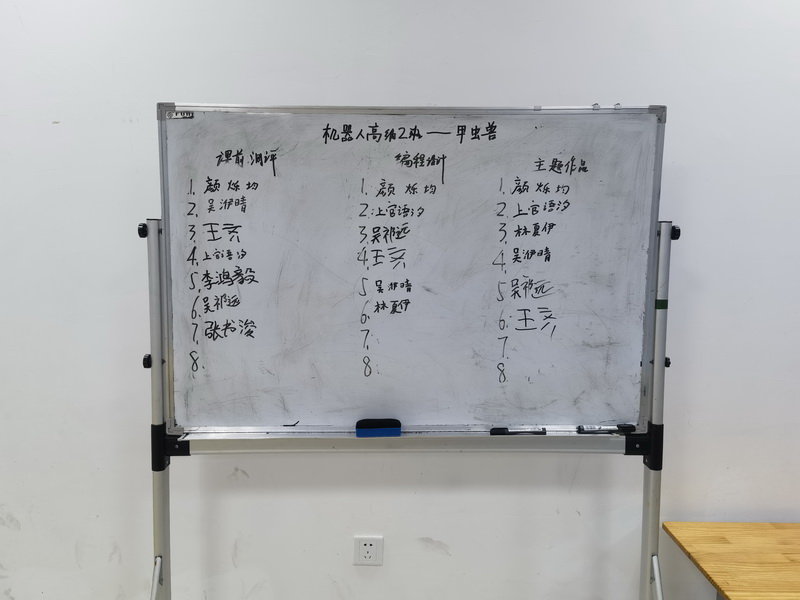 机器人高级2班——甲虫兽
课前测评
1. 颜烁均
2. 吴湘晴
3. 王亥
4. 上官语汐
5. 李鸿毅
6. 吴祁远
7. 张书浚
8.
编程设计
1. 颜烁均
2. 上官语汐
3. 吴祁远
4. 王亥
5. 吴湘晴
6. 林夏伊
7.
8.
主题作品
1. 颜烁均
2. 上官语汐
3. 林夏伊
4. 吴湘晴
5. 吴祁远
6. 王亥
7.
8.